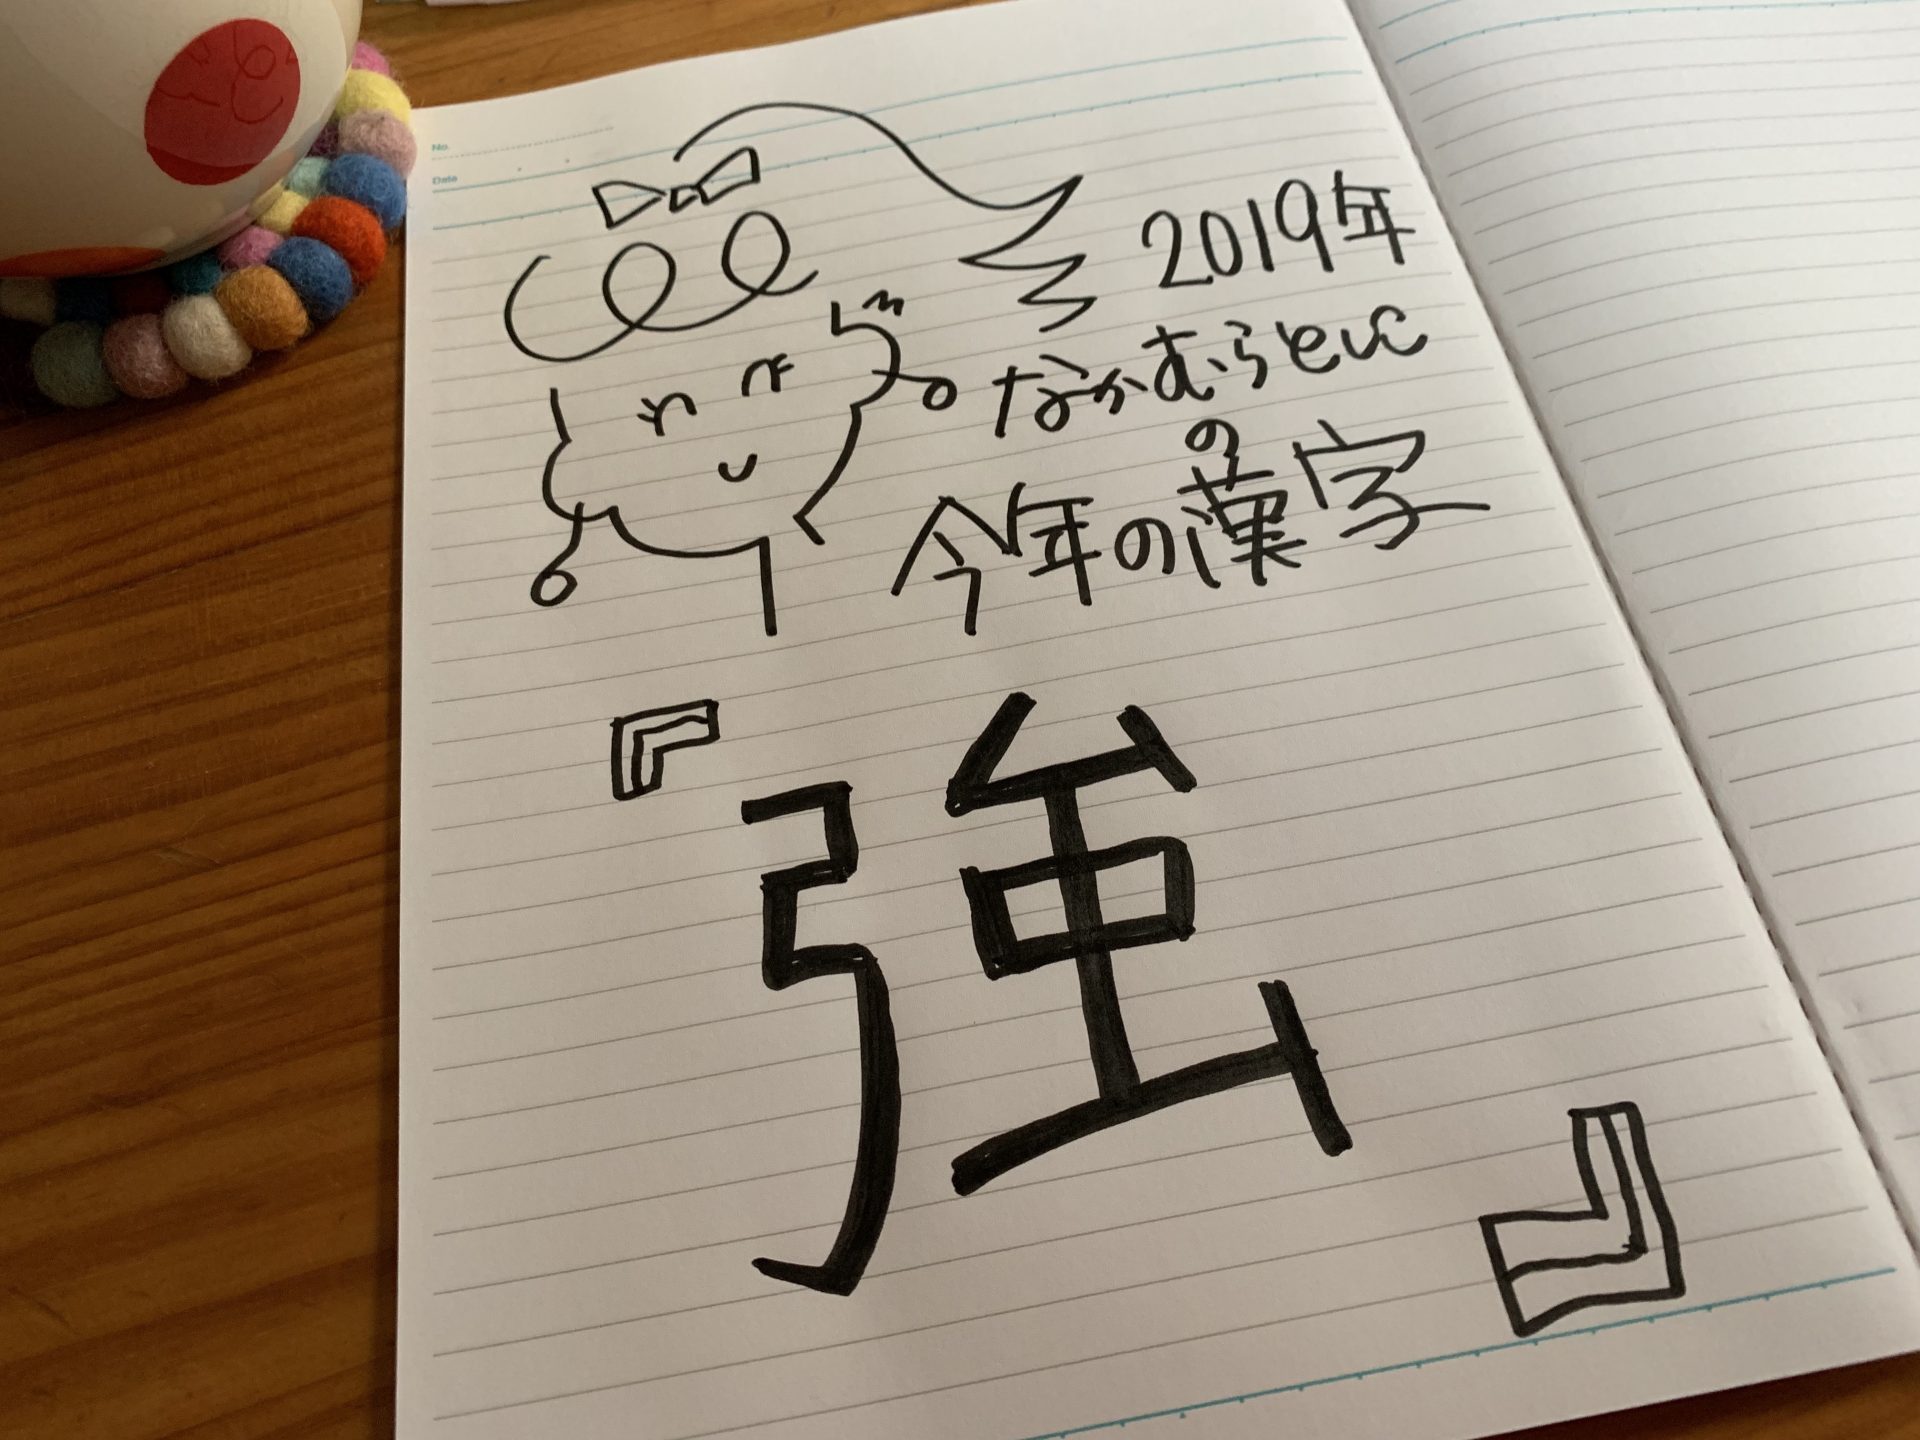 No.
Date
2019年
なかむら
の
今年の漢字
『強』